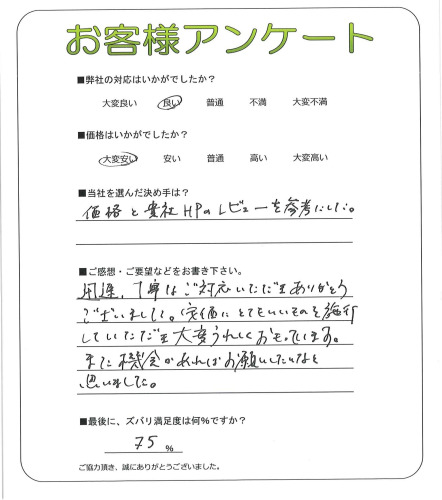 お客様アンケート
■弊社の対応はいかがでしたか?
大変良い 良い 普通 不満 大変不満
■価格はいかがでしたか?
大変安い 安い 普通 高い 大変高い
■当社を選んだ決め手は?
価格と貴社HPのレビューを参考にした。
■ご感想・ご要望などをお書き下さい。
丁寧はご対応いただきありがとう
ございました。安価にとてもいいものを施行
していただき大変うれしくおもっています。
また機会があればお願いしたいなと
思いました。
■最後に、ズバリ満足度は何%ですか?
75 %
ご協力頂き、誠にありがとうございました。